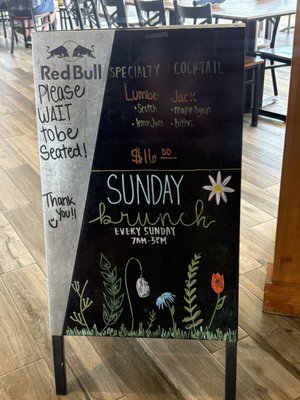 Red Bull
Please
WAIT
to be
Seated!
Thank
you!!
SPECIALTY COCKTAIL
Lumber Jack
• Scotch • maple syrup
• lemon Juice • bitters
$16.00
SUNDAY
brunch
EVERY SUNDAY
7AM-3PM